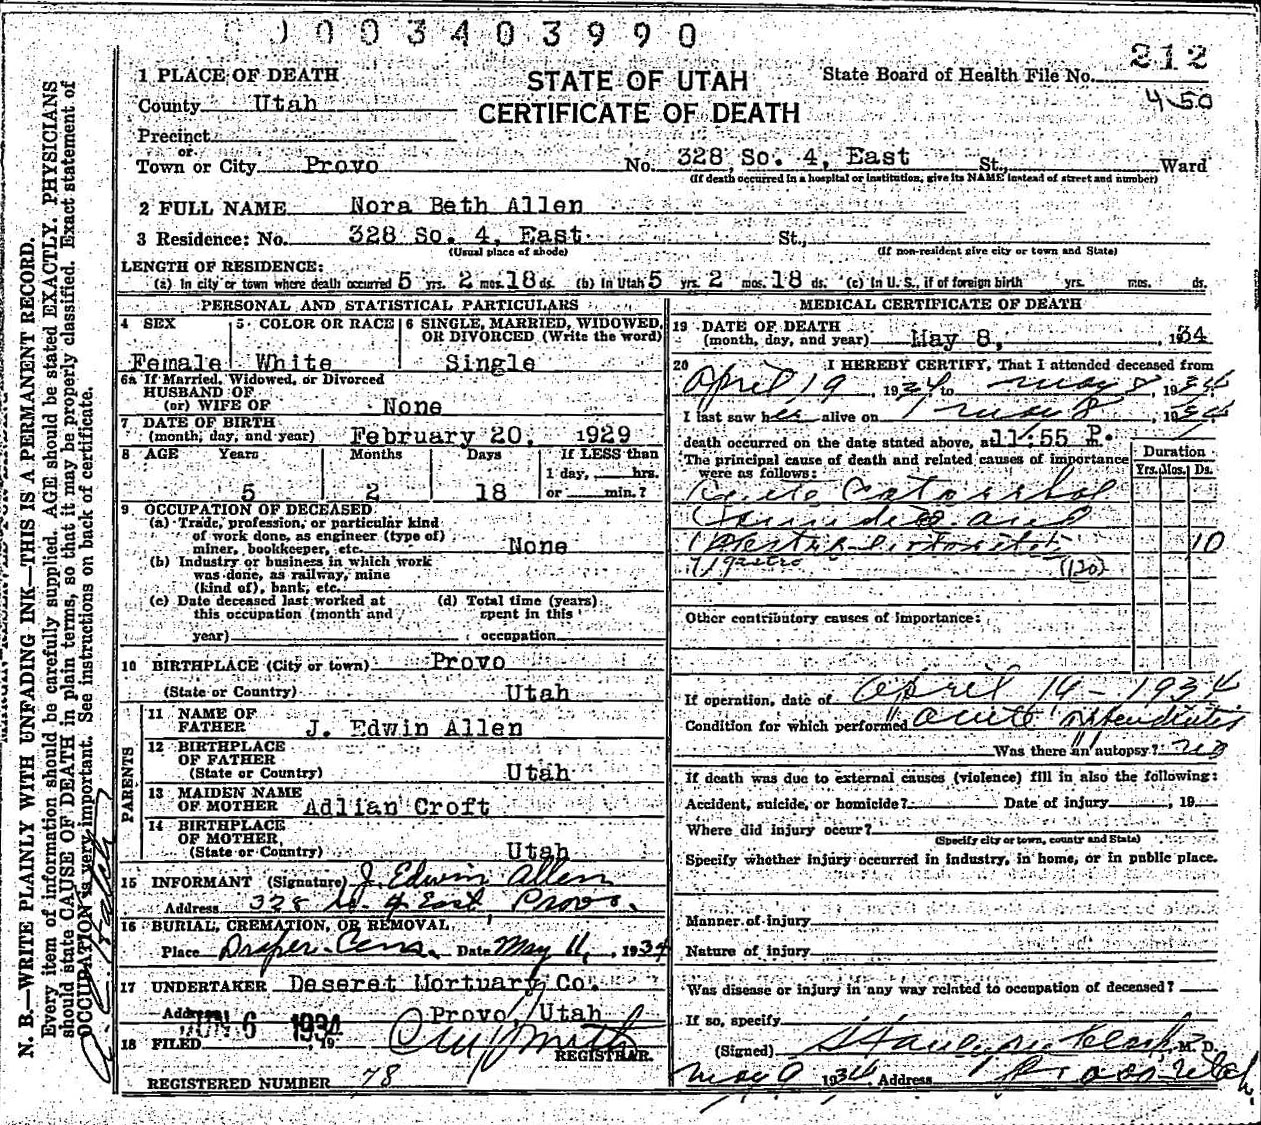 0003403990
212
1 PLACE OF DEATH
STATE OF UTAH
State Board of Health File No.
County Utah
CERTIFICATE OF DEATH
450
Precinct
or
Town or City Provo No. 328 So. 4, East St., Ward
(If death occurred in a hospital or institution, give its NAME instead of street and number)
2 FULL NAME Nora Beth Allen
3 Residence: No. 328 So. 4, East St.,
(Usual place of abode) (If non-resident give city or town and State)
LENGTH OF RESIDENCE:
(a) In city or town where death occurred 5 yrs. 2 mos. 18 ds. (b) In Utah 5 yrs. 2 mos. 18 ds. (c) In U. S., if of foreign birth yrs. mos. ds.
PERSONAL AND STATISTICAL PARTICULARS
4 SEX 5 COLOR OR RACE 6 SINGLE, MARRIED, WIDOWED,
OR DIVORCED (Write the word)
Female White Single
6a If Married, Widowed, or Divorced
HUSBAND OF
(or) WIFE OF None
7 DATE OF BIRTH
(month, day, and year) February 20, 1929
8 AGE Years Months Days If LESS than
1 day, hrs.
5 2 18 or min.?
9 OCCUPATION OF DECEASED
(a) Trade, profession, or particular kind
of work done, as engineer (type of)
miner, bookkeeper, etc. None
(b) Industry or business in which work
was done, as railway, mine
(kind of), bank, etc.
(c) Date deceased last worked at (d) Total time (years)
this occupation (month and spent in this
year) occupation
10 BIRTHPLACE (City or town) Provo
(State or Country) Utah
PARENTS
11 NAME OF
FATHER J. Edwin Allen
12 BIRTHPLACE
OF FATHER
(State or Country) Utah
13 MAIDEN NAME
OF MOTHER Adlian Croft
14 BIRTHPLACE
OF MOTHER
(State or Country) Utah
15 INFORMANT (Signature) J. Edwin Allen
Address 328 So. 4 East, Provo.
16 BURIAL, CREMATION, OR REMOVAL
Place Draper Cem. Date May 11, 1934
17 UNDERTAKER Deseret Mortuary Co.
Address Provo, Utah
JUN 6 1934
18 FILED , 19
REGISTRAR.
REGISTERED NUMBER 78
MEDICAL CERTIFICATE OF DEATH
19 DATE OF DEATH
(month, day, and year) May 8, 1934
20 I HEREBY CERTIFY, That I attended deceased from
April 19 1934 to May 8, 1934
I last saw her alive on May 8, 1934
death occurred on the date stated above, at 11:55 P.
The principal cause of death and related causes of importance
were as follows:
Duration
Yrs. Mos. Ds.
Acute Catarrhal
Jaundice and
10
(120)
Other contributory causes of importance:
If operation, date of April 19-1934
Condition for which performed acute appendicitis
Was there an autopsy? no
If death was due to external causes (violence) fill in also the following:
Accident, suicide, or homicide? Date of injury , 19
Where did injury occur?
(Specify city or town, county and State)
Specify whether injury occurred in industry, in home, or in public place.
Manner of injury
Nature of injury
Was disease or injury in any way related to occupation of deceased?
If so, specify
(Signed) M. D.
May 9 1934 Address Provo Utah
N. B.—WRITE PLAINLY WITH UNFADING INK—THIS IS A PERMANENT RECORD.
Every item of information should be carefully supplied. AGE should be stated EXACTLY. PHYSICIANS
should state CAUSE OF DEATH in plain terms, so that it may be properly classified. Exact statement of
OCCUPATION is very important. See instructions on back of certificate.